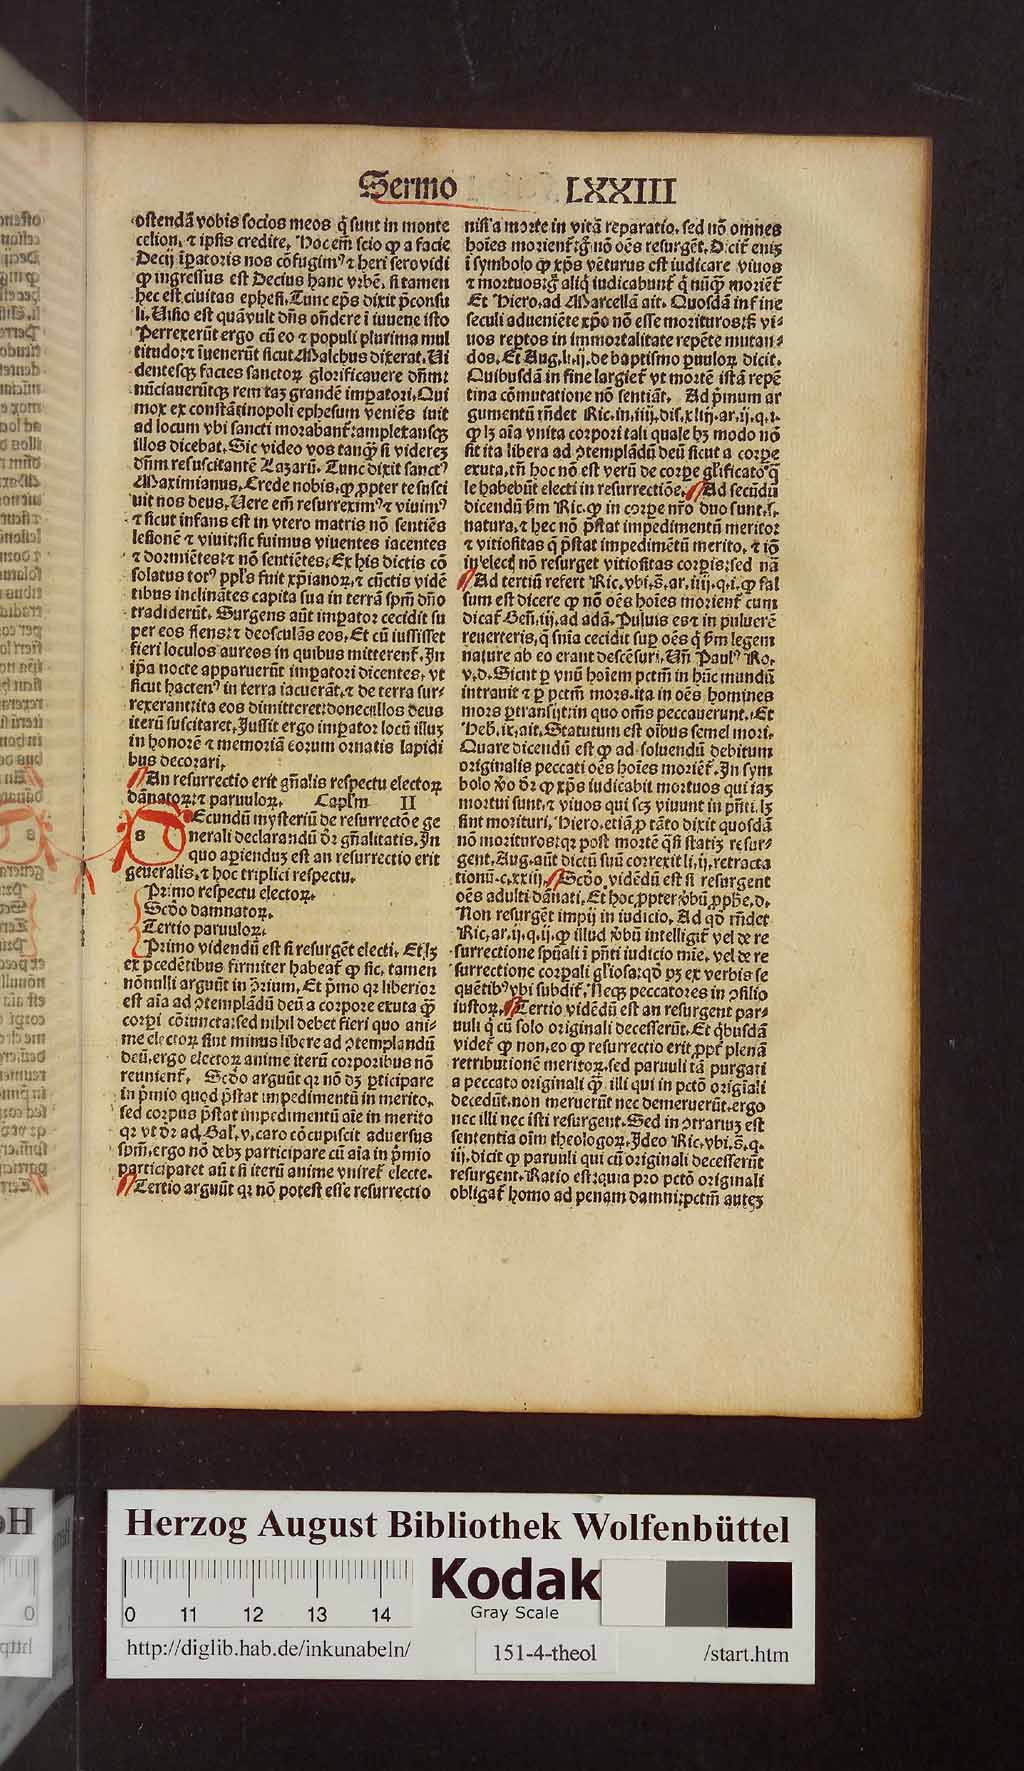 Sermo LXXIII
ostendã vobis socios meos q̃ sunt in monte
celion, ⁊ ipsis credite. Hoc em̃ scio ꝙ a facie
Decij ĩꝑatoris nos cõfugimꝰ ⁊ heri sero vidi
ꝙ ingressus est Decius hanc vrbẽ. si tamen
hec est ciuitas ephesi. Tunc ep̃s dixit ꝓconsu
li. Uisio est quã vult dñs oñdere ĩ iuuene isto
Perrexerũt ergo cũ eo ⁊ populi plurima mul
titudo: ⁊ ĩuenerũt sicut Malchus dixerat. Ui
dentesqꝫ facies sanctoꝝ glorificauere dñm:
nũciauerũtqꝫ rem taꝫ grandẽ imꝑatori. Qui
mox ex constãtinopoli ephesum veniẽs iuit
ad locum vbi sancti morabant᷑: amplexansqꝫ
illos dicebat. Sic video vos tanꝙ̃ si viderez
dñm resuscitantẽ Lazarũ. Tunc dixit sanctꝰ
Maximianus. Crede nobis, ꝙ ꝓpter te susci
uit nos deus. Uere em̃ resurreximꝰ ⁊ viuimꝰ
⁊ sicut infans est in vtero matris nõ sentiẽs
lesionẽ ⁊ viuit: sic fuimus viuentes iacentes
⁊ dormiẽtes: ⁊ nõ sentiẽtes. Ex his dictis cõ
solatus totꝰ ppl̃s fuit xp̃ianoꝝ, ⁊ cũctis vidẽ
tibus inclinãtes capita sua in terrã sp̃m dño
tradiderũt. Surgens aũt imꝑator cecidit su
per eos flens: ⁊ deosculãs eos. Et cũ iussisset
fieri loculos aureos in quibus mitterent᷑. In
ip̃a nocte apparuerũt imꝑatori dicentes, vt
sicut hactenꝰ in terra iacuerãt, ⁊ de terra sur⸗
rexerant: ita eos dimitteret: donec illos deus
iterũ suscitaret. Jussit ergo imꝑator locũ illuꝫ
in honorẽ ⁊ memoriã eorum ornatis lapidi
bus decorari.
An resurrectio erit gñalis respectu electoꝝ
dãnatoꝝ: ⁊ paruuloꝝ. Capl̃m II
s Ecundũ mysteriũ de resurrectõe ge
nerali declarandũ d̃r gñalitatis. In
quo aꝑienduꝫ est an resurrectio erit
generalis. ⁊ hoc triplici respectu.
Primo respectu electoꝝ.
Scd̃o damnatoꝝ.
Tertio paruuloꝝ.
Primo videndũ est si resurgẽt electi. Et lꝫ
ex p̃cedẽtibus firmiter habeat᷑ ꝙ sic, tamen
nõnulli arguũt in ꝯ̃rium. Et p̃mo qꝛ liberior
est aĩa ad ꝯtemplãdũ deũ a corpore exuta ꝙ̃
corpi cõiuncta: sed nihil debet fieri quo ani⸗
me electoꝝ sint minus libere ad ꝯtemplandũ
deũ. ergo electoꝝ anime iterũ corporibus nõ
reunient᷑. Scd̃o arguũt qꝛ nõ dꝫ ꝑticipare
in p̃mio quod p̃stat impedimentũ in merito,
sed corpus p̃stat impedimentũ aĩe in merito
qꝛ vt d̃r ad Gal. v. caro cõcupiscit aduersus
sp̃m. ergo nõ debꝫ participare cũ aĩa in p̃mio
participaret aũt si iterũ anime vniret᷑ electe.
Tertio arguũt qꝛ nõ potest esse resurrectio
nisi a morte in vitã reparatio. sed nõ omnes
hoĩes morient᷑: g̃ nõ oẽs resurgẽt. Dicit᷑ eniꝫ
ĩ symbolo ꝙ xp̃s vẽturus est iudicare viuos
⁊ mortuos: g̃ aliq̃ iudicabunt᷑ q̃ nũꝙ̃ moriẽt᷑
Et Hiero. ad Marcellã ait. Quosdã inf ine
seculi adueniẽte xp̃o nõ esse morituros: sꝫ vi⸗
uos reptos in immortalitate repẽte mutan⸗
dos. Et Aug. li. ij. de baptismo ꝑuuloꝝ dicit.
Quibusdã in fine largiet᷑ vt mortẽ istã repẽ
tina cõmutatione nõ sentiãt. Ad p̃mum ar
gumentũ r̃ndet Ric. in. iiij. dis. xliij. ar. ij. q. i.
ꝙ lꝫ aĩa vnita corpori tali quale hꝫ modo nõ
sit ita libera ad ꝯtemplãdũ deũ sicut a corpe
exuta, tñ hoc nõ est verũ de corpe gl̃ificato q̃
le habebũt electi in resurrectiõe. Ad secũdũ
dicendũ ẜm Ric. ꝙ in corpe nr̃o duo sunt. s.
natura, ⁊ hec nõ p̃stat impedimentũ meritoꝛ
⁊ vitiositas q̃ p̃stat impedimẽtũ merito, ⁊ iõ
in elect᷒ nõ resurget vitiositas corpis: sed nã
Ad tertiũ refert Ric. vbi. s̃. ar. iiij. q. i. ꝙ fal
sum est dicere ꝙ nõ oẽs hoĩes morient᷑ cum
dicat᷑ Geñ. iij. ad adã. Puluis es ⁊ in puluerẽ
reuerteris, q̃ sñia cecidit suꝑ oẽs q̃ ẜm legem
nature ab eo erant descẽsuri. Uñ Paulꝰ Ro.
v. d. Sicut ꝑ vnũ hoĩem pctm̃ in hũc mundũ
intrauit ⁊ ꝑ pctm̃ mors. ita in oẽs homines
mors ꝑtransijt: in quo om̃s peccauerunt. Et
Heb̃. ix. ait. Statutum est oĩbus semel mori.
Quare dicendũ est ꝙ ad soluendũ debitum
originalis peccati oẽs hoĩes moriẽt᷑. In sym
bolo v̾o d̃r ꝙ xp̃s iudicabit mortuos qui iaꝫ
mortui sunt, ⁊ viuos qui scꝫ viuunt in p̃nti. lꝫ
sint morituri. Hiero. etiã ꝓ tãto dixit quosdã
nõ morituros: qꝛ post mortẽ q̃si statiꝫ resur⸗
gent. Aug. aũt dictũ suũ correxit li. ij. retracta
tionũ. c. xxiij. Scd̃o. vidẽdũ est si resurgent
oẽs adulti dãnati. Et hoc ꝓpter v̾bũ ꝓph̃e. d.
Non resurgẽt impij in iudicio. Ad qd̃ r̃ndet
Ric. ar. ij. q. ij. ꝙ illud v̾bũ intelligit᷑ vel de re
surrectione sp̃uali ĩ p̃nti iudicio mie. vel de re
surrectione corpali gl̃iosa: qd̃ pꝫ ex verbis se
quẽtibꝰ vbi subdit᷑. Neqꝫ peccatores in ꝯsilio
iustoꝝ. Tertio vidẽdũ est an resurgent par⸗
uuli q̃ cũ solo originali decesserũt. Et q̃busdã
videt᷑ ꝙ non. eo ꝙ resurrectio erit ꝓpt᷑ plenã
retributionẽ meritoꝝ. sed paruuli tã purgati
a peccato originali ꝙ̃ illi qui in pctõ origiñali
decedũt. non meruerũt nec demeruerũt. ergo
nec illi nec isti resurgent. Sed in ꝯtrariuꝫ est
sententia oĩm theologoꝝ. Ideo Ric. vbi. s̃. q.
iij. dicit ꝙ paruuli qui cũ originali decesserũt
resurgent. Ratio est: quia pro pctõ originali
obligat᷑ homo ad penam damni: pctm̃ auteꝫ
Herzog August Bibliothek Wolfenbüttel
Kodak
Gray Scale
0 11 12 13 14
http://diglib.hab.de/inkunabeln/ 151-4-theol /start.htm